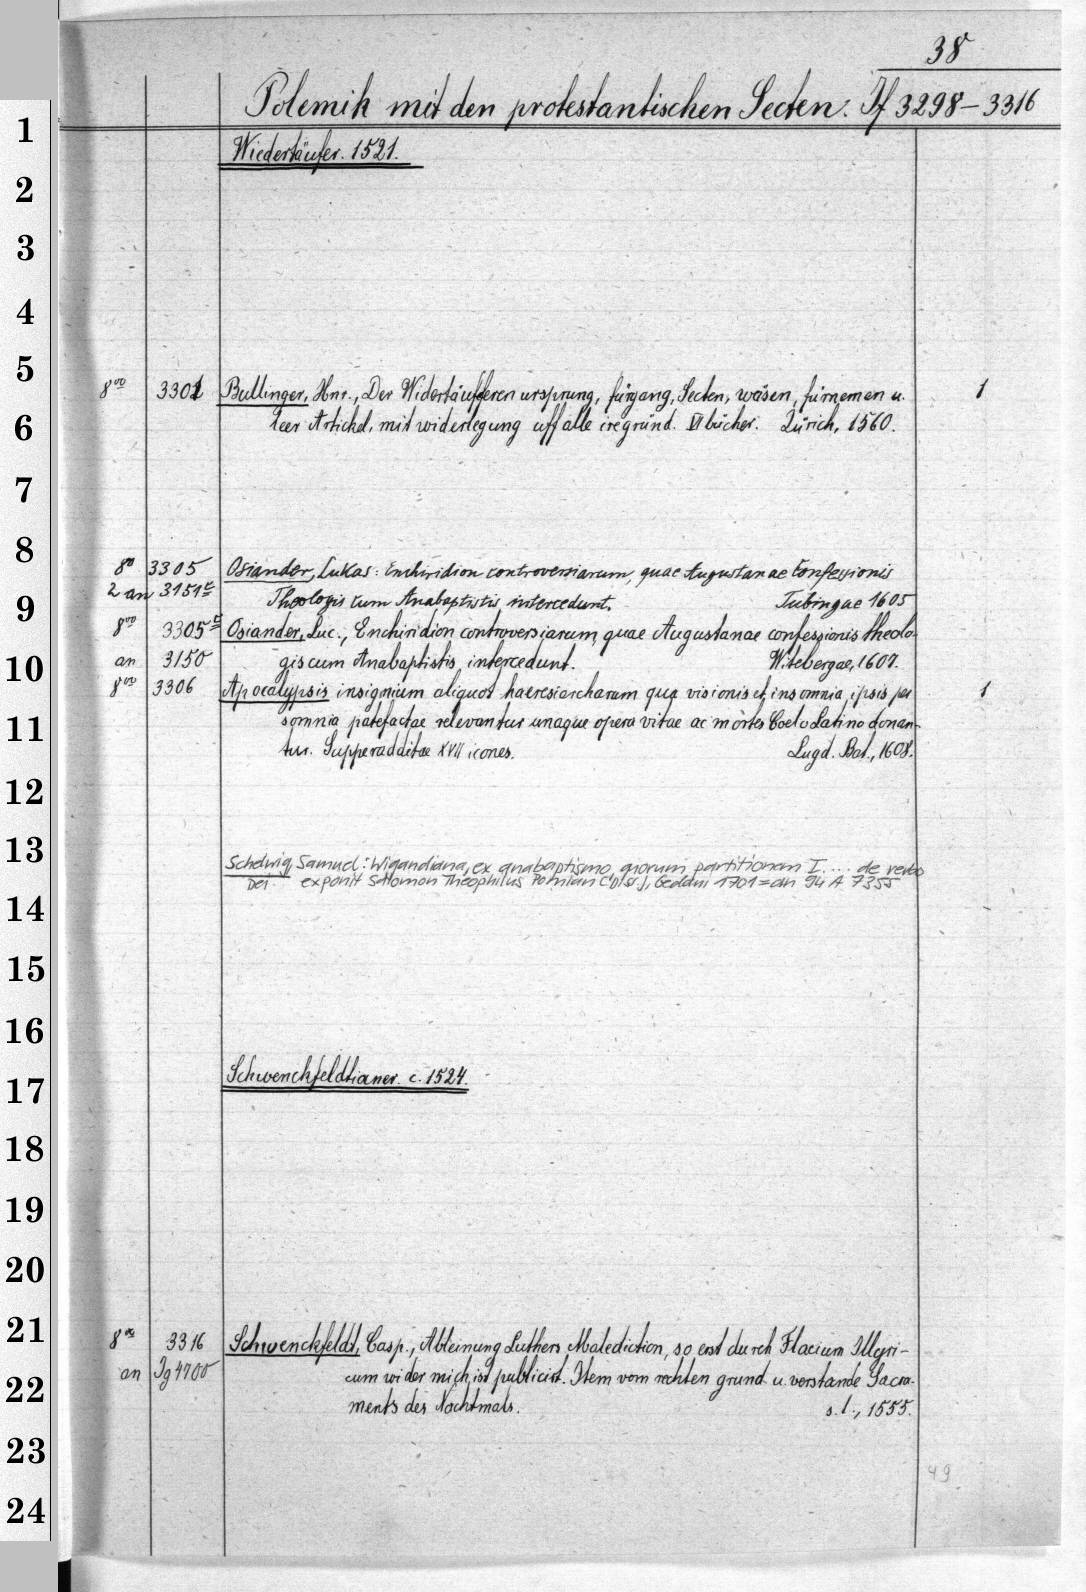 38
Polemik mit den protestantischen Secten. If 3298–3316
1
Wiedertäufer. 1521.
2
3
4
5
8vo 3301 Bullinger, Hnr., Der Widertäufferen ursprung, fürgang, Secten, wäsen, fürnemen u. 1
6 leer Artickel, mit widerlegung uff alle ire gründ. VI bücher. Zürich, 1560.
7
8
8o 3305 Osiander, Lukas: Enchiridion controversiarum, quae Augustanae Confessionis
2 an 3151c Theologis cum Anabaptistis intercedunt. Tubingae 1605
9
8vo 3305c Osiander, Luc., Enchiridion controversiarum, quae Augustanae confessionis theolo-
10 an 3150 gis cum Anabaptistis, intercedunt. Witebergae, 1607.
8vo 3306 Apocalypsis insignium aliquot haeresiarcharum qua visionis et insomnia, ipsis per 1
11 somnia patefactae relevantur unaque opera vitae ac mortes Coelo Latino donan-
tur. Supperadditae XVII icones. Lugd. Bat., 1608.
12
13 Schelwig, Samuel: Wigandiana, ex anabaptismo, quorum partitionem I.... de verbo
Dei exponit Salomon Theophilus (Diss.), Gedani 1701 = an 94 A 7355
14
15
16
17 Schwenckfeldtianer. c. 1524.
18
19
20
21 8vo 3316 Schwenckfeldt, Casp., Ableinung Luthers Malediction, so erst durch Flacium Illyri-
22 an Ig 4700 cum wider mich ist publicirt. Item vom rechten grund u. verstande Sacra-
ments des Nachtmals. s. l., 1555.
23
49
24